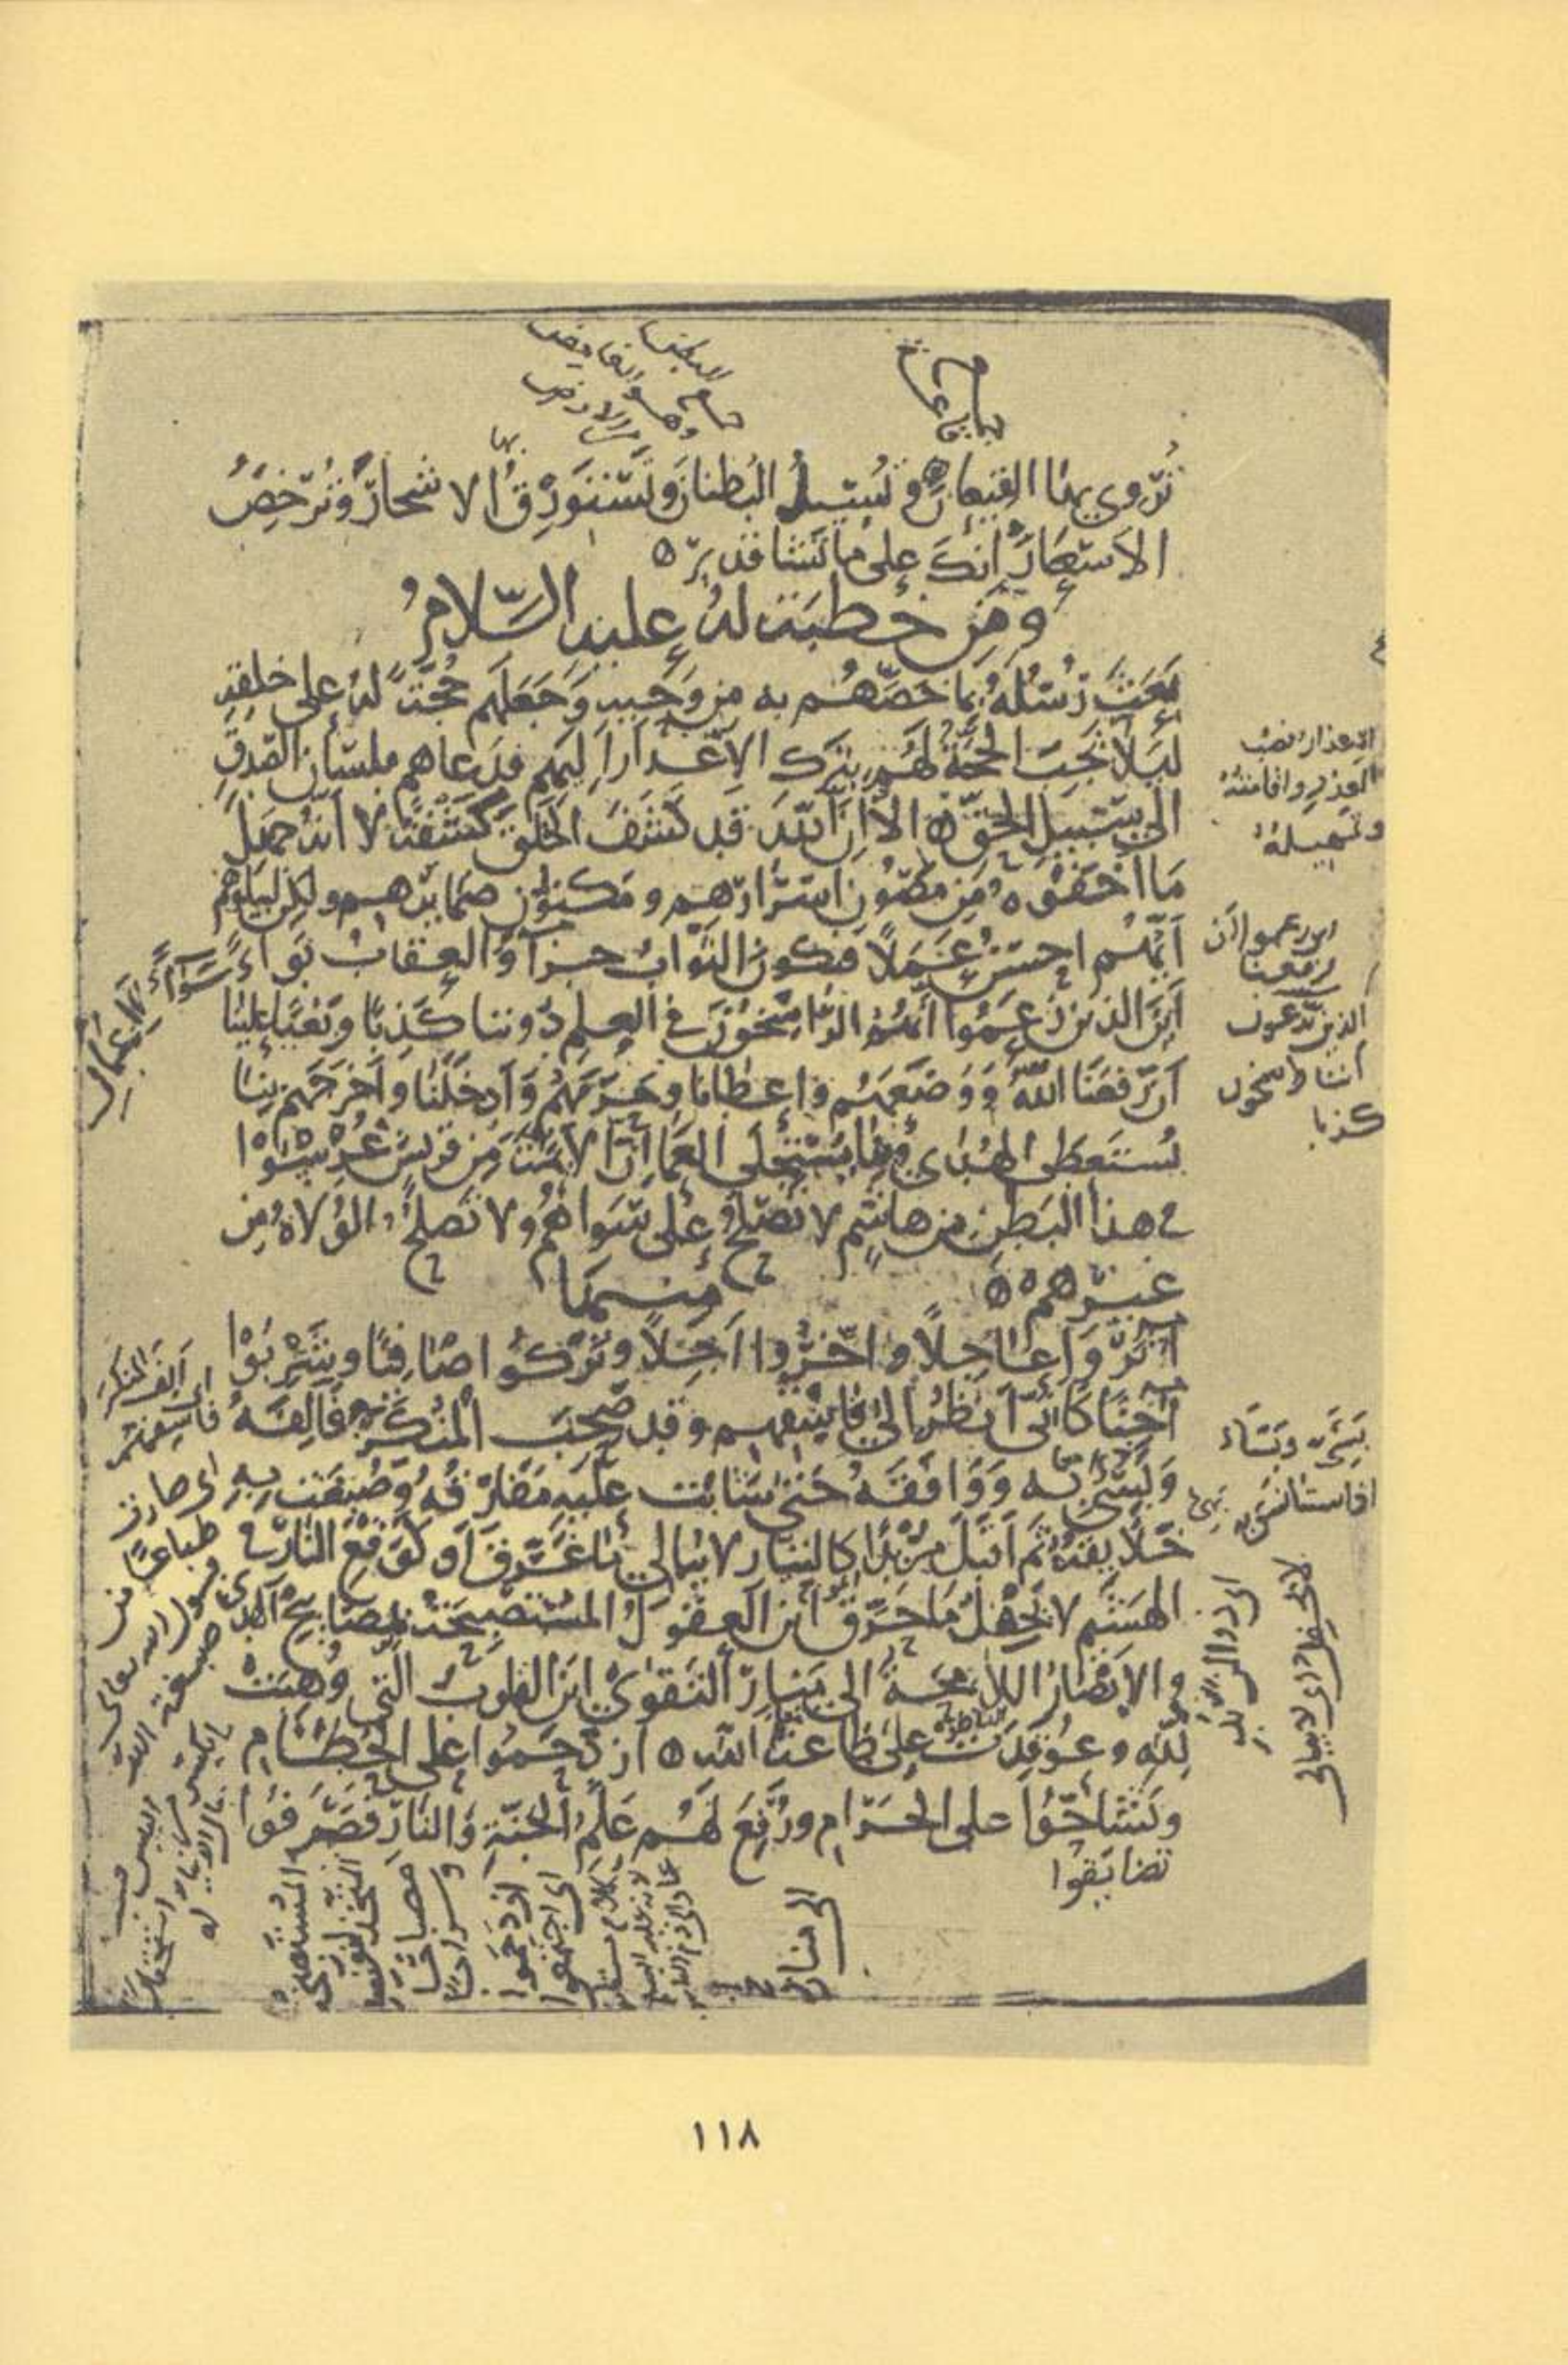 تُرْوِي بها القيعان وتُسيلُ البُطنان وتَستَورِقُ الاشجارَ وتُرخِصُ
الاسْعَارَ إنكَ على ما تَشا قديرٌ
ومِن خطبةٍ له عليه السّلامُ
بَعَثَ رُسُلَهُ بما خصَّهُم به من وَحيِه وَجَعَلَهم حُجَّةً لهُ على خلقِه
لِيَلا تَجِبَ الحُجَّةُ لهُم بِتَركِ الاِعْذارِ اِليهم فدَعاهم بلسَانِ الصّدقِ
الى سَبيلِ الحَقِّ الا اِنَّ اللهَ قد كَشَفَ الخَلقَ كَشْفَةً لا اَنّهُ جَهِلَ
مَا اخفَوْهُ مِن مَصُونِ اسْرَارِهِم ومَكنونِ ضمَايرِهم ولكِن لِيَبلُوَهُم
اَيُّهُم احسَنُ عَمَلاً فيكونَ الثَّوَابُ جزآءً والعِقَابُ بَوَآءً
اَينَ الذينَ زَعَمُوا أنَّهُمُ الرَّاسِخُونَ في العِلمِ دُوننا كَذِبًا وبَغيًا علينا
اَن رَفعَنَا اللهُ وَوَضَعَهُم واعطانا وحَرَمَهُم وَاَدخَلَنا واَخرَجَهم بِنا
يُستَعطَى الهُدَى وبِنا يُستَجلَى العَمَى اِنَّ الايمَّةَ مِن قريشٍ غُرِسُوا
في هذا البَطنِ مِن هاشِمٍ لا تَصلُحُ على سِوَاهُم ولا تَصلُحُ الوُلاةُ مِن
غيرِهم
مِنهَا
آثَرُوا عَاجِلاً واخَّرُوا آجِلاً وتَرَكُوا صَافِيًا وشَرِبُوا
آجِنًا كَاَنّي اَنظُرُ اِلى فاسِقِهِم وقد صَحِبَ المُنكَرَ فَاَلِفَهُ
وبَسِئَ به وَوَافَقَهُ حَتى شَابَت عَلَيهِ مَفَارِقُهُ وصُبِغَت بِهِ
خَلايقُهُ ثم اَقبَلَ مُزْبِدًا كالتيّار لا يُبالي مَا غَرَّقَ اَو كَوَقعِ النَّارِ في
الهَشيمِ لا يَحفِلُ مَا حَرَّقَ اَينَ العقولُ المُستَصبِحَةُ بمَصَابيحِ الهُدى
والابصَارُ اللامِحَةُ الى مَنارِ التَقوى اينَ القلوبُ التي وُهِبَتْ
لِلّهِ وعُوقِدَتْ على طاعَةِ اللهِ ازدَحَمُوا على الحُطَامِ
وتَشَاحُّوا على الحَرَامِ ورُفِعَ لهُم عَلَمُ الجَنّةِ وَالنَّارِ فصَرَفُوا
تضايقُوا
الاعذار نصب
العذر واقامته
وتسهيله
اين زعموا ان
رفعنا
الذين يدعون
اننا راسخون
كذبا
سَوَآءً
اَلِفَ المنكر
اذا استانس به
اى صارت
طباعًا
لا يحفل اى لا يبالى
ازدَحَمُوا
اى اجتمعوا
١١٨